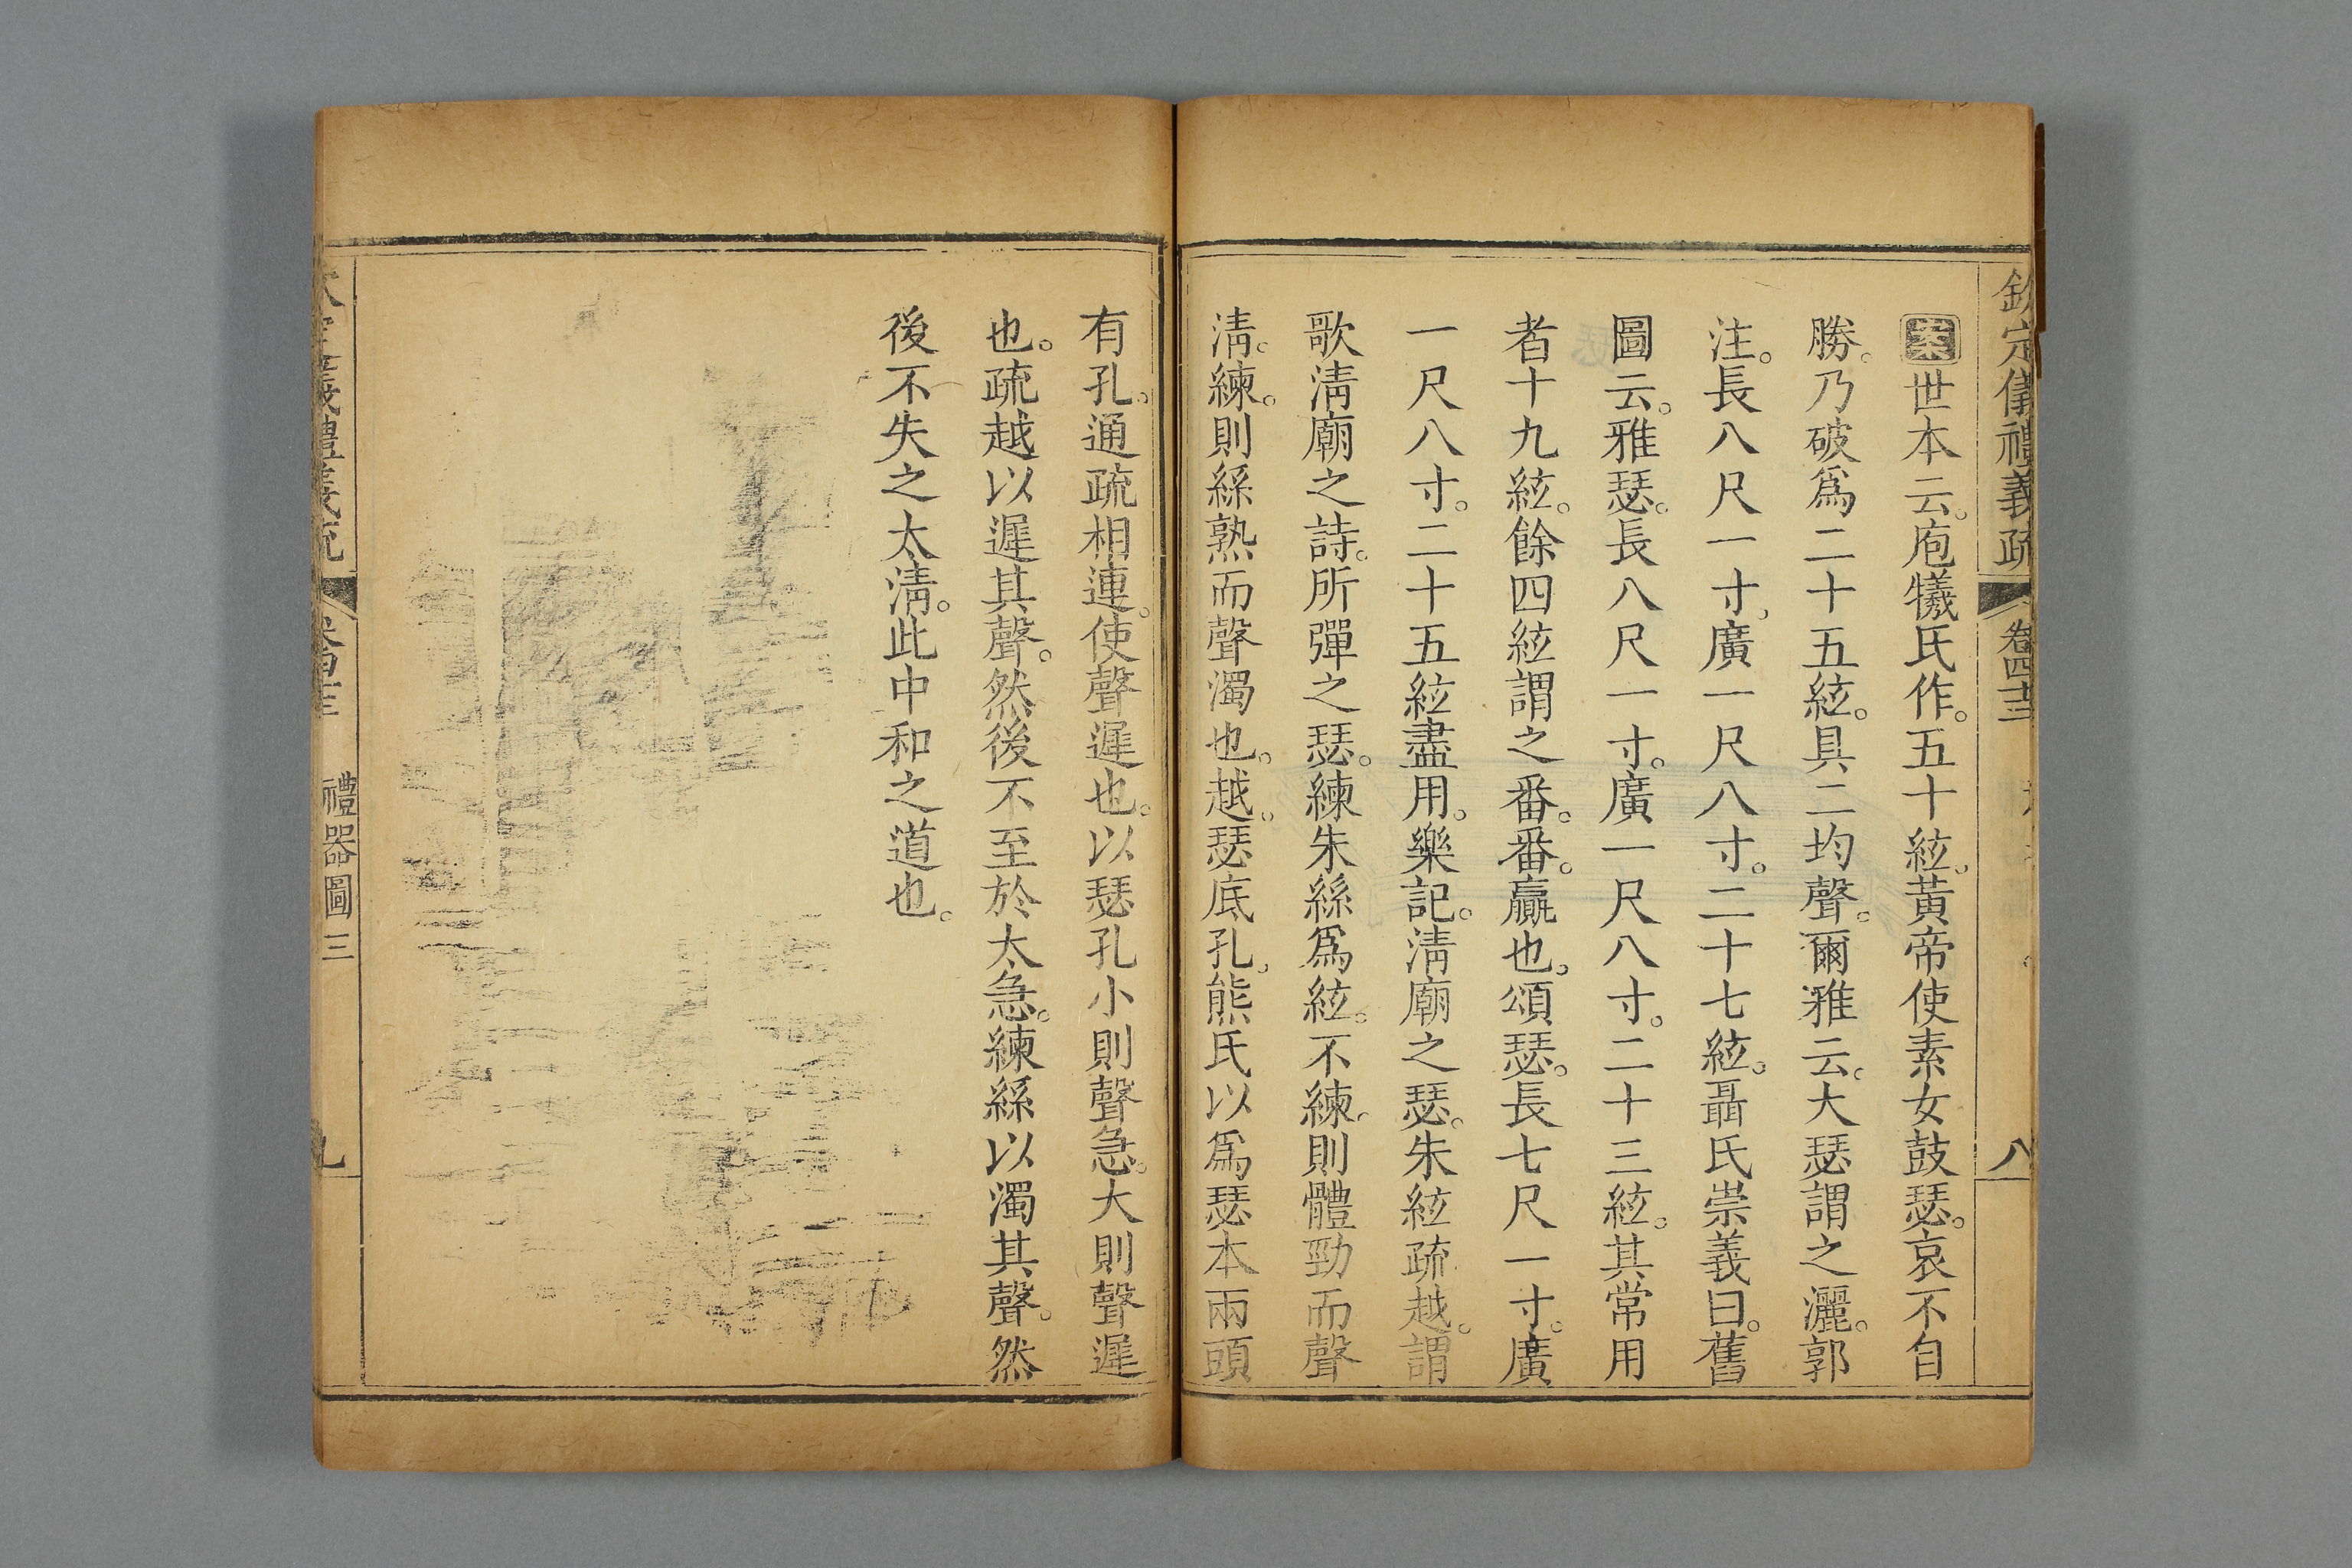 欽定儀禮義疏 卷四十三 八
案世本云。庖犧氏作。五十絃。黃帝使素女鼓瑟。哀不自
勝。乃破爲二十五絃。具二均聲。爾雅云。大瑟謂之灑。郭
注。長八尺一寸。廣一尺八寸。二十七絃。聶氏崇義曰。舊
圖云。雅瑟。長八尺一寸。廣一尺八寸。二十三絃。其常用
者十九絃。餘四絃謂之番。番。贏也。頌瑟。長七尺一寸。廣
一尺八寸。二十五絃盡用。樂記。淸廟之瑟。朱絃疏越。謂
歌淸廟之詩。所彈之瑟。練朱絲爲絃。不練。則體勁而聲
淸。練。則絲熟而聲濁也。越。瑟底孔。熊氏以爲瑟本兩頭
有孔。通疏相連。使聲遲也。以瑟孔小則聲急。大則聲遲
也。疏越以遲其聲。然後不至於太急。練絲以濁其聲。然
後不失之太淸。此中和之道也。
禮器圖三